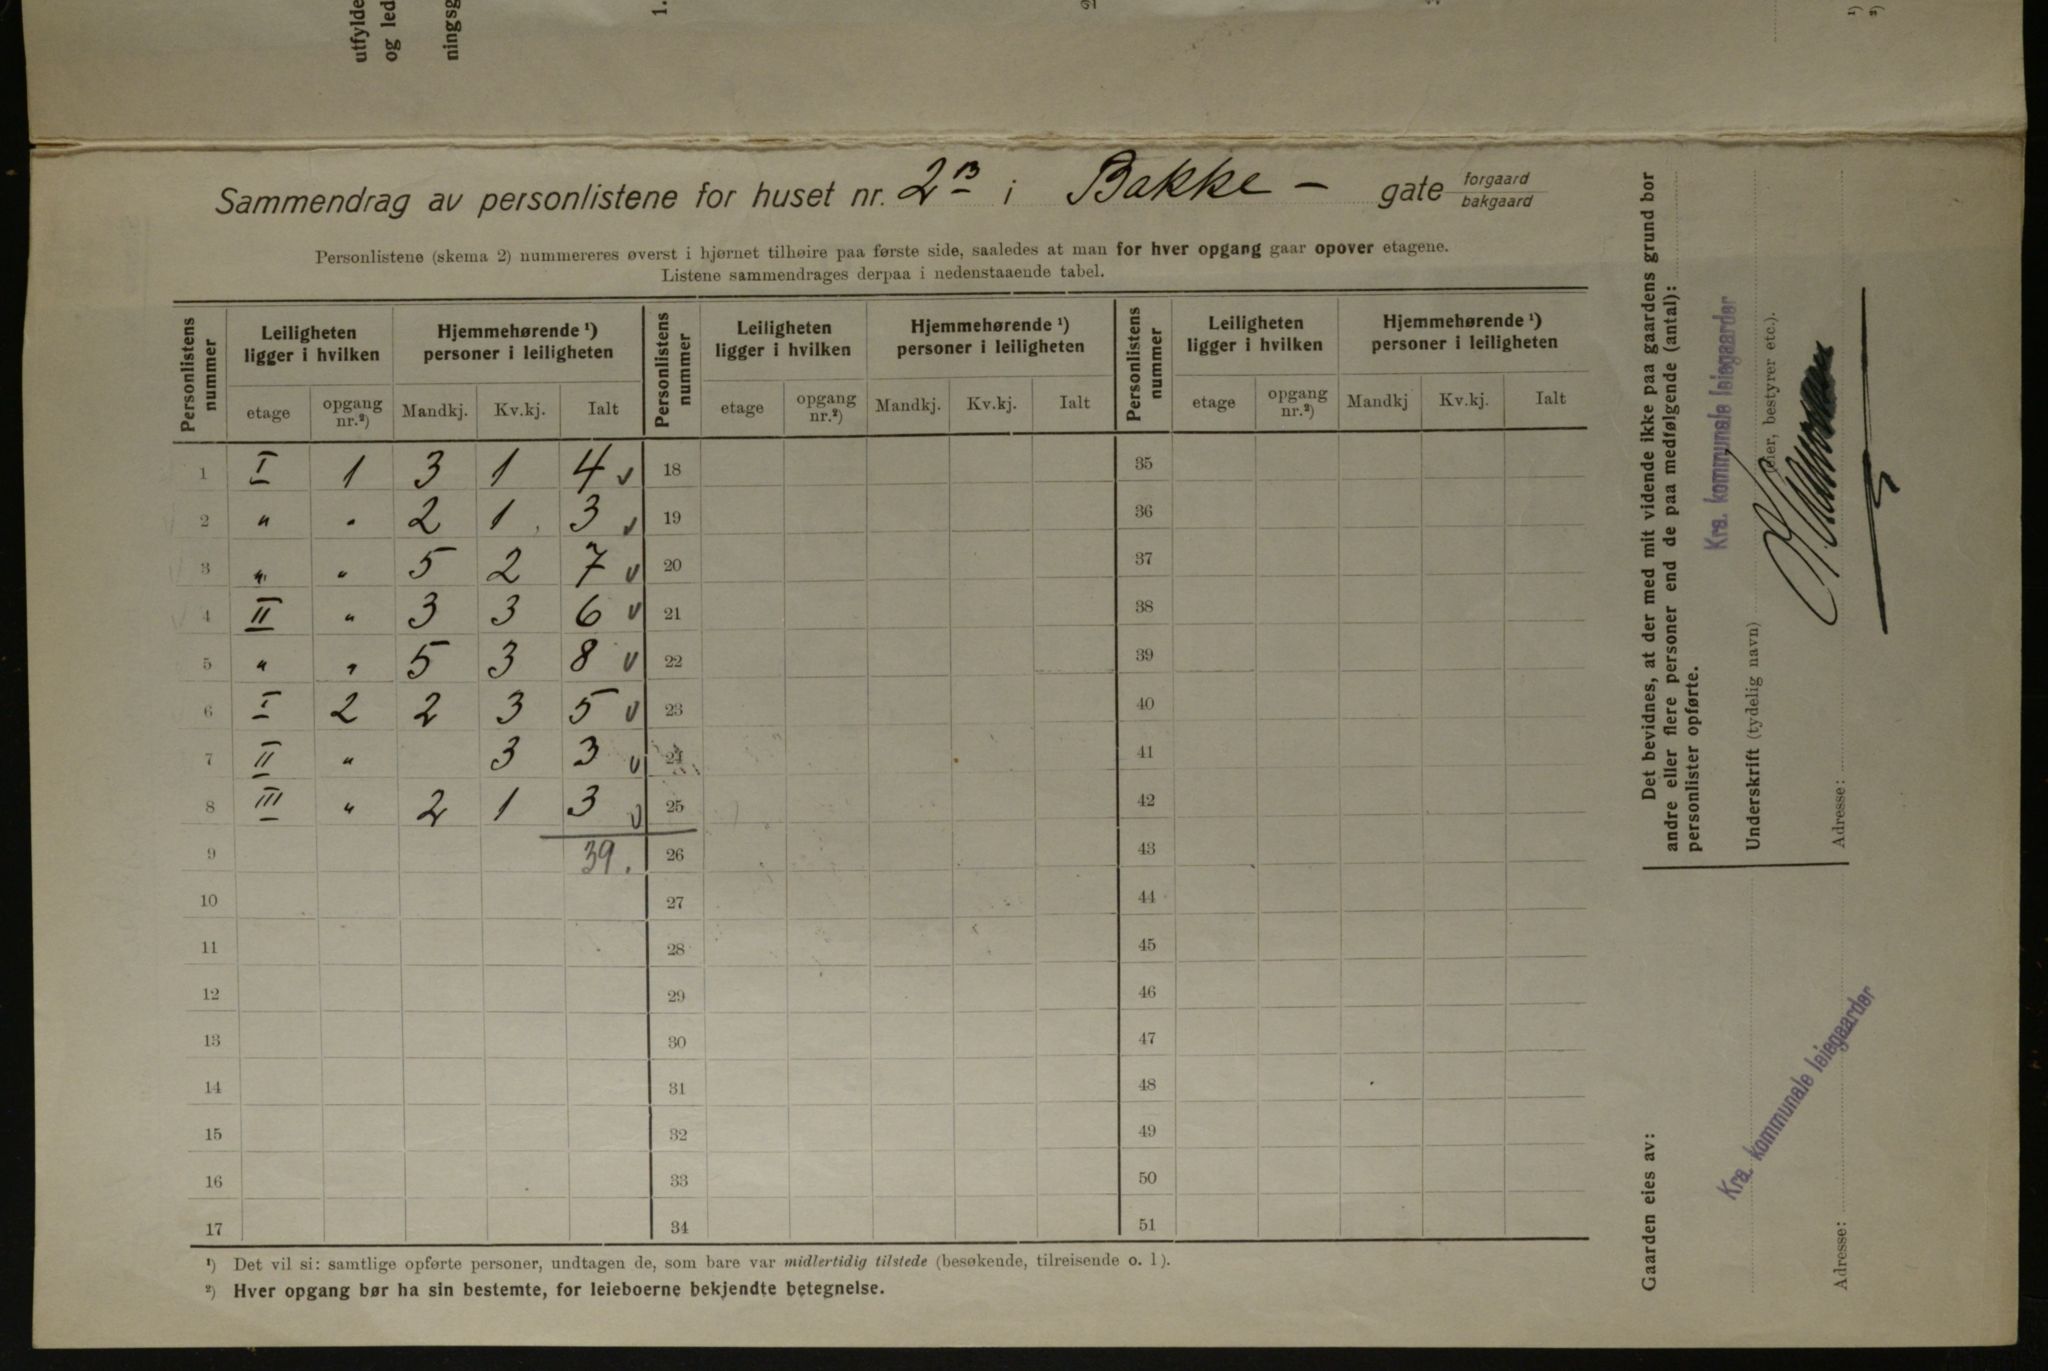 utfylde
og led
ningsg
1.
¹)
²)
Sammendrag av personlistene for huset nr. 2 B i Bakke - gate forgaard
bakgaard
Personlistene (skema 2) nummereres øverst i hjørnet tilhøire paa første side, saaledes at man for hver opgang gaar opover etagene.
Listene sammendrages derpaa i nedenstaaende tabel.
Personlistens nummer | Leiligheten ligger i hvilken | Hjemmehørende ¹) personer i leiligheten | Personlistens nummer | Leiligheten ligger i hvilken | Hjemmehørende ¹) personer i leiligheten | Personlistens nummer | Leiligheten ligger i hvilken | Hjemmehørende ¹) personer i leiligheten
etage | opgang nr.²) | Mandkj. | Kv.kj. | Ialt | etage | opgang nr.²) | Mandkj. | Kv.kj. | Ialt | etage | opgang nr.²) | Mandkj | Kv.kj. | Ialt
1 I 1 3 1 4 ✓ 18 35
2 " " 2 1 3 ✓ 19 36
3 " " 5 2 7 ✓ 20 37
4 II " 3 3 6 ✓ 21 38
5 " " 5 3 8 ✓ 22 39
6 I 2 2 3 5 ✓ 23 40
7 II " 3 3 ✓ 24 41
8 III " 2 1 3 ✓ 25 42
9 39. 26 43
10 27 44
11 28 45
12 29 46
13 30 47
14 31 48
15 32 49
16 33 50
17 34 51
¹) Det vil si: samtlige opførte personer, undtagen de, som bare var midlertidig tilstede (besøkende, tilreisende o. l).
²) Hver opgang bør ha sin bestemte, for leieboerne bekjendte betegnelse.
Det bevidnes, at der med mit vidende ikke paa gaardens grund bor
andre eller flere personer end de paa medfølgende (antal):
personlister opførte.
Kra. kommunale leiegaarder
Underskrift (tydelig navn) (eier, bestyrer etc.).
Adresse:
Gaarden eies av:
Kra. kommunale leiegaarder
Adresse: